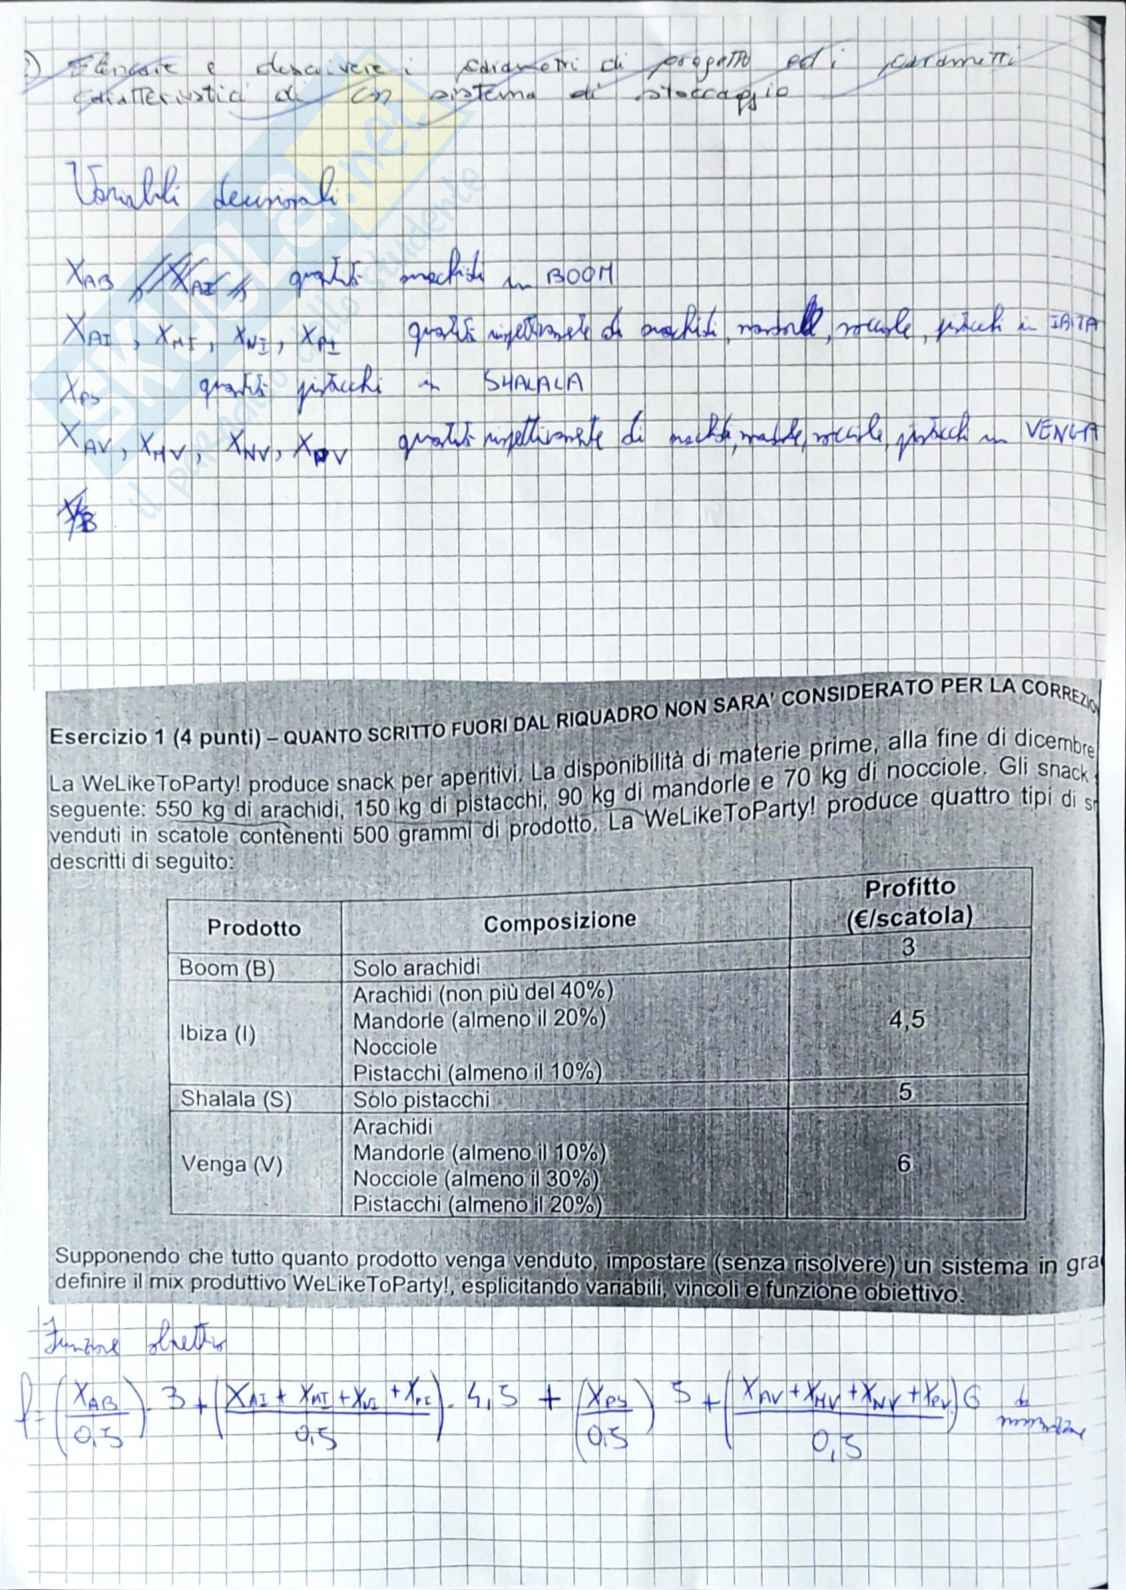 Elencare e descrivere i parametri di progetto ed i parametri
caratteristici di un sistema di stoccaggio
Variabili decisionali
X_AB quantità arachidi in BOOM
X_AI, X_MI, X_NI, X_PI quantità rispettivamente di arachidi, mandorle, nocciole, pistacchi in IBIZA
X_PS quantità pistacchi in SHALALA
X_AV, X_MV, X_NV, X_PV quantità rispettivamente di arachidi, mandorle, nocciole, pistacchi in VENGA
Esercizio 1 (4 punti) – QUANTO SCRITTO FUORI DAL RIQUADRO NON SARA' CONSIDERATO PER LA CORREZIO
La WeLikeToParty! produce snack per aperitivi. La disponibilità di materie prime, alla fine di dicembre
seguente: 550 kg di arachidi, 150 kg di pistacchi, 90 kg di mandorle e 70 kg di nocciole. Gli snack
venduti in scatole contenenti 500 grammi di prodotto. La WeLikeToParty! produce quattro tipi di s
descritti di seguito:
Prodotto Composizione Profitto (€/scatola)
Boom (B) Solo arachidi 3
Ibiza (I) Arachidi (non più del 40%) 4,5
Mandorle (almeno il 20%)
Nocciole
Pistacchi (almeno il 10%)
Shalala (S) Solo pistacchi 5
Venga (V) Arachidi 6
Mandorle (almeno il 10%)
Nocciole (almeno il 30%)
Pistacchi (almeno il 20%)
Supponendo che tutto quanto prodotto venga venduto, impostare (senza risolvere) un sistema in gra
definire il mix produttivo WeLikeToParty!, esplicitando variabili, vincoli e funzione obiettivo.
Funzione obiettivo
f = (X_AB / 0,5) · 3 + ((X_AI + X_MI + X_NI + X_PI) / 0,5) · 4,5 + (X_PS / 0,5) 5 + ((X_AV + X_MV + X_NV + X_PV) / 0,5) 6
SKUOLA.net
il paradiso dello studente